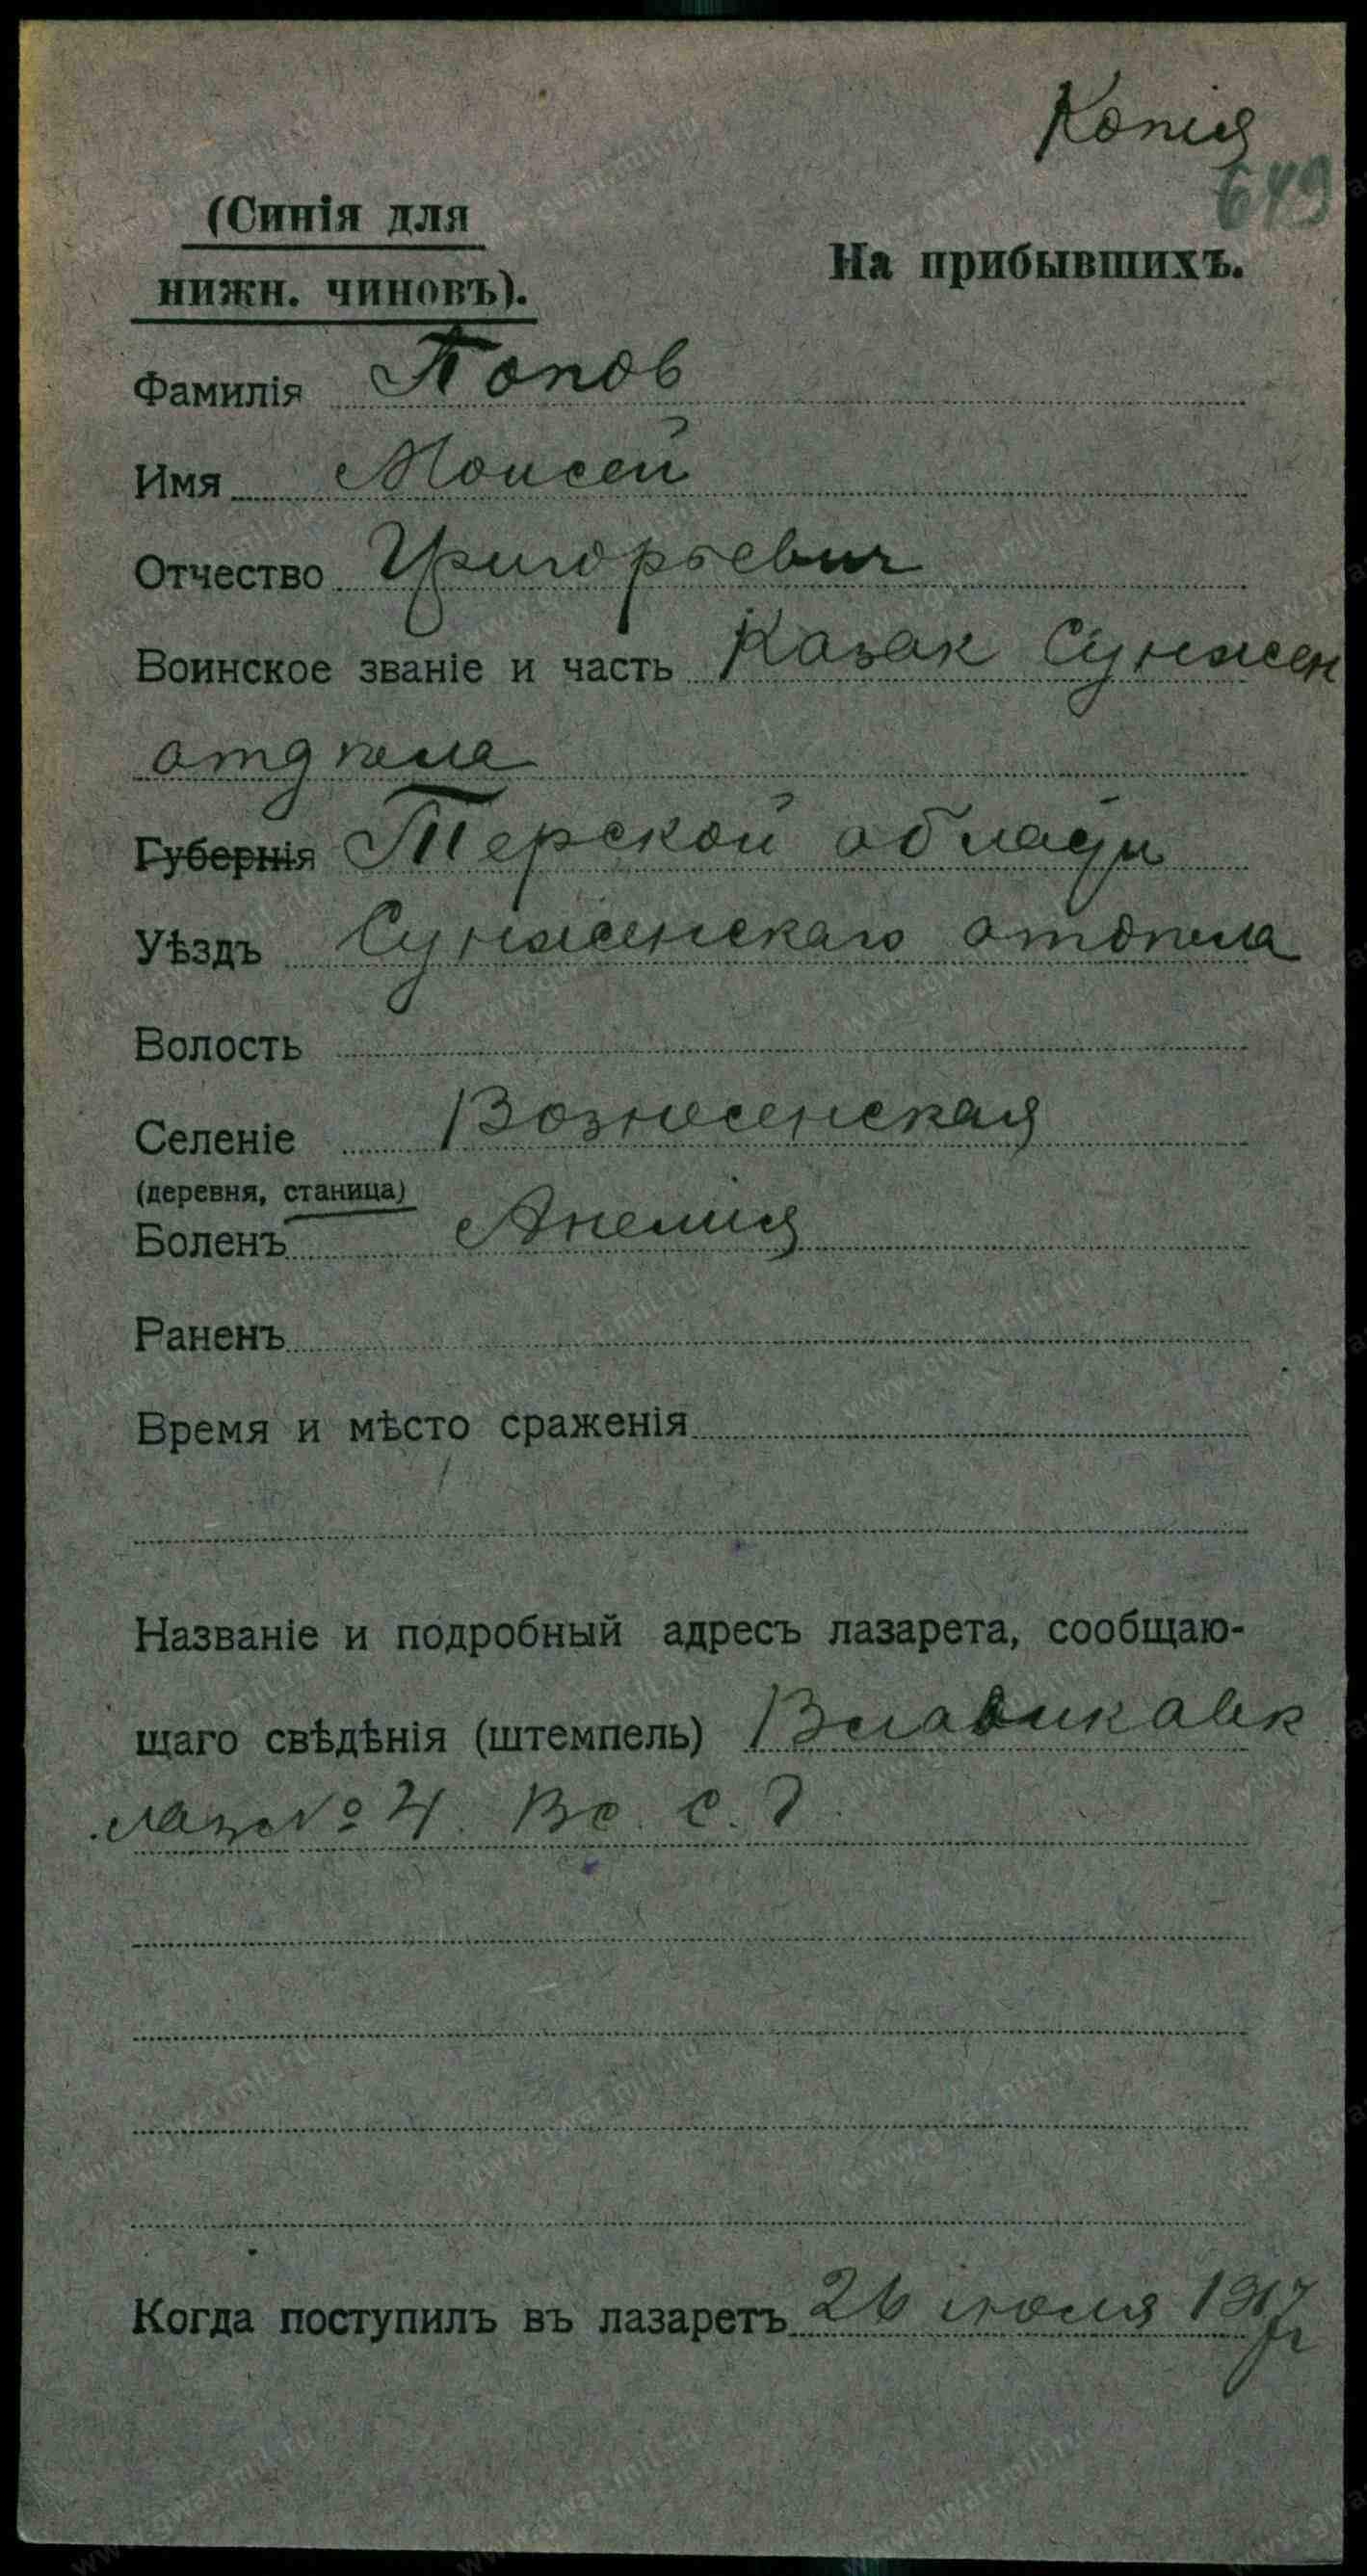 Копія
649
(Синія для
нижн. чиновъ).
На прибывшихъ.
Фамилія Попов
Имя Моисей
Отчество Григорьевич
Воинское званіе и часть Казак Сунжен
отдѣла
Губернія Терской области
Уѣздъ Сунженскаго отдѣла
Волость
Селеніе Вознесенская
(деревня, станица)
Боленъ Анемия
Раненъ
Время и мѣсто сраженія
Названіе и подробный адресъ лазарета, сообщаю-
щаго свѣдѣнія (штемпель) Владикавк
лаз № 4. Вс. С. Г.
Когда поступилъ въ лазаретъ 26 июля 1917 г